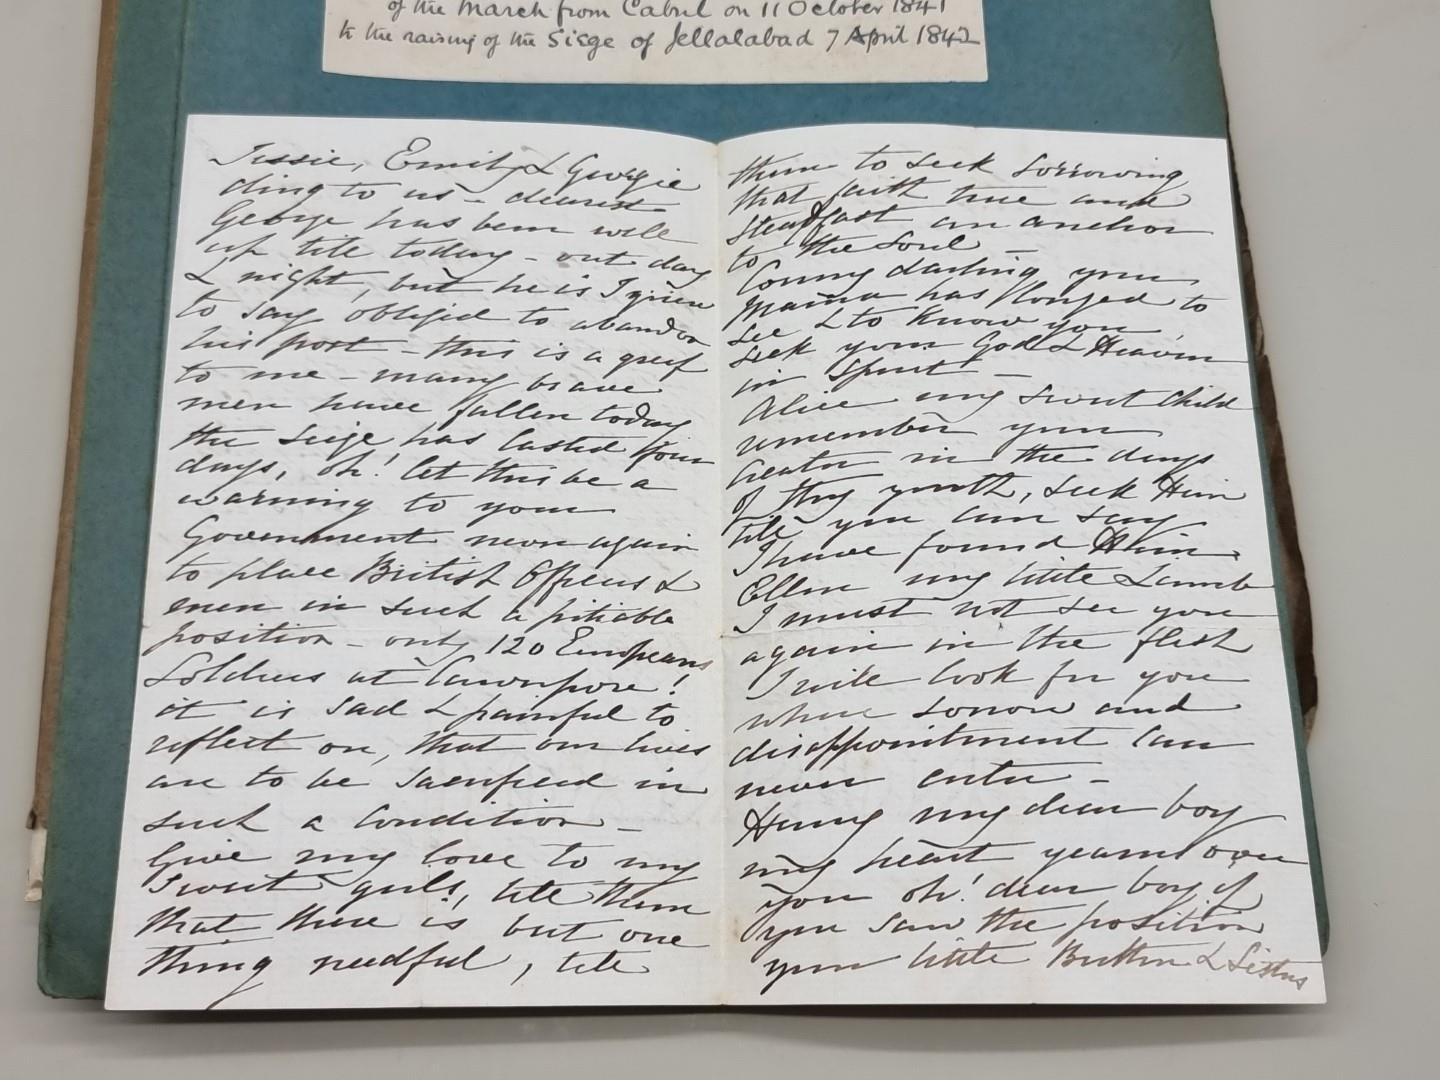 of the March from Cabul on 11 October 1841
to the raising of the Siege of Jellalabad 7 April 1842
Jessie, Emily & Georgie
cling to us – dearest
George has been well
up till today – out day
& night, but he is I grieve
to say obliged to abandon
his post – this is a grief
to me – many brave
men have fallen today
the seige has lasted four
days, oh! let this be a
warning to your
Government never again
to place British Officers &
men in such a pitiable
position – only 120 European
Soldiers at Cawnpore!
it is sad & painful to
reflect on, that our lives
are to be sacrificed in
such a condition –
Give my love to my
sweet girls, tell them
that there is but one
thing needful, tell
them to seek sorrowing
that faith true and
steadfast an anchor
to the Soul –
Conny darling your
Mama has longed to
see & to know you
seek your God & Heaven
in Spirit –
Alice my sweet Child
remember your
Creator in the days
of thy youth, seek Him
till you can say
I have found Him.
Ellen my little Lamb
I must not see you
again in the flesh
I will look for you
where sorrow and
disappointment can
never enter –
Henry my dear boy
my heart yearns over
you oh! dear boy if
you saw the position
your little Brother & Sisters